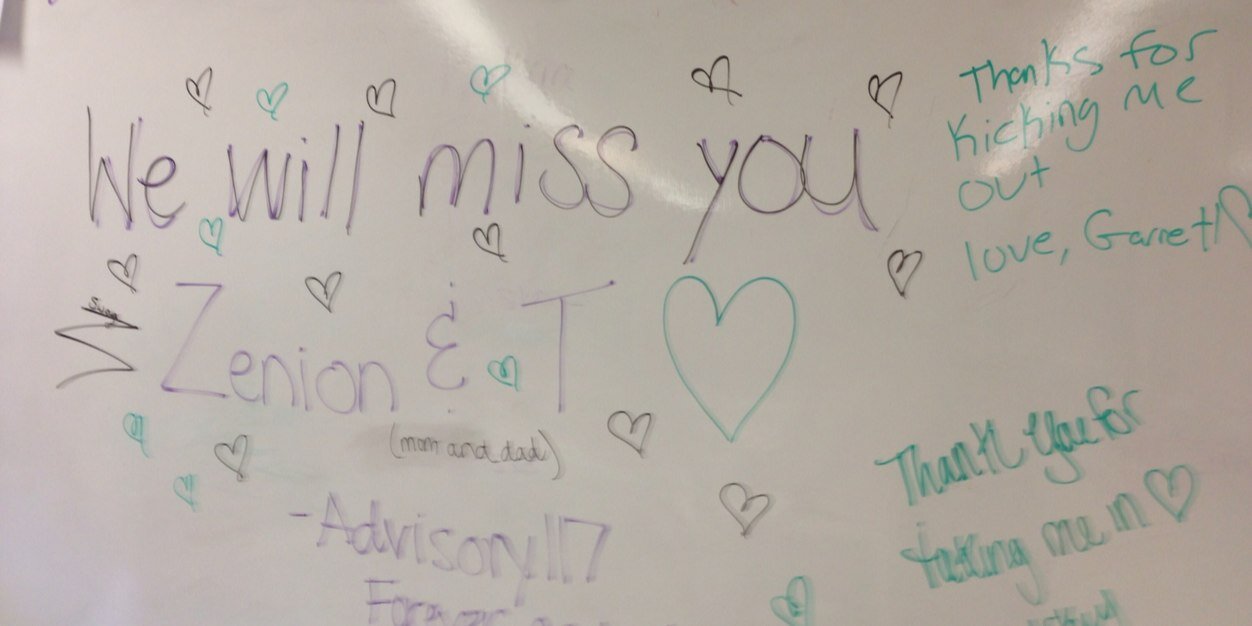 We will miss you
Zenion & T
(mom and dad)
-Advisory 117
Forever
Swag
Thanks for
Kicking me
out
love, Garret
Thank you for
taking me in